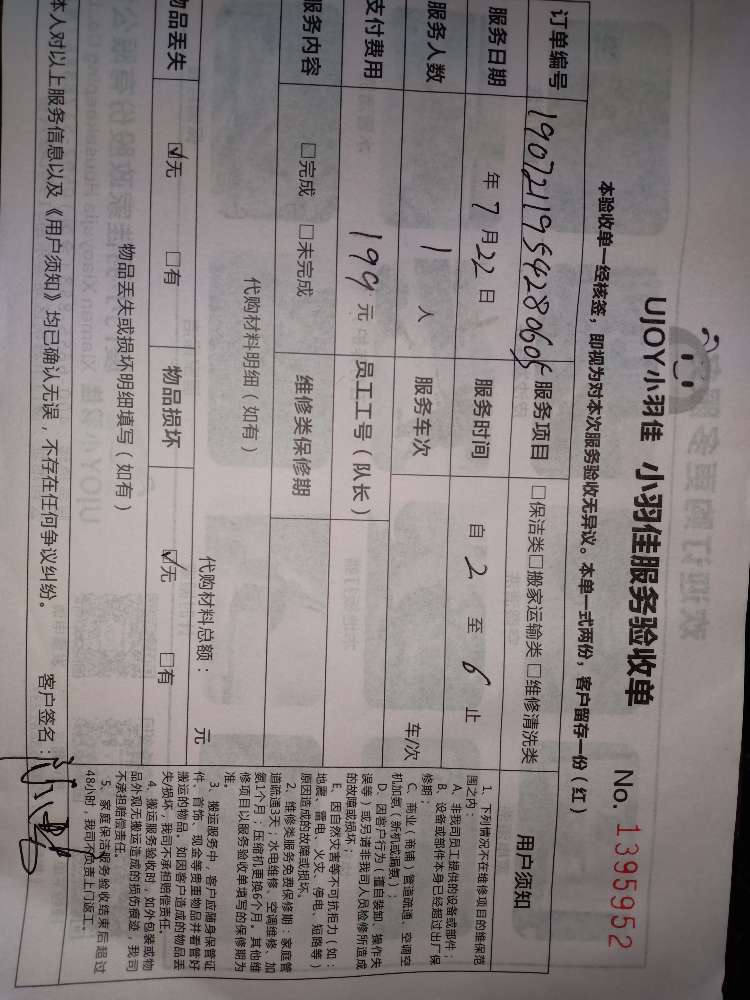 UJOY小羽佳 小羽佳服务验收单
No. 1395952
本验收单一经核签，即视为对本次服务验收无异议。本单一式两份，客户留存一份（红）
订单编号 190721195428060 服务项目 □保洁类□搬家运输类□维修清洗类
服务日期 年 7 月 22 日 服务时间 自 2 至 6 止
服务人数 1 人 服务车次 车/次
支付费用 199 元 员工工号（队长）
服务内容 □完成 □未完成 维修类保修期
代购材料明细（如有）
代购材料总额： 元
物品丢失 ☑无 □有 物品损坏 ☑无 □有
物品丢失或损坏明细填写（如有）
本人对以上服务信息以及《用户须知》均已确认无误，不存在任何争议纠纷。 客户签名：
用户须知
1、下列情况不在维修项目的维保范
围之内：
A、非我司员工提供的设备或部件；
B、设备或部件本身已经超过出厂保
修期；
C、商业（商铺）管道疏通、空调空
机加氨（新机或漏氨）；
D、因客户行为（擅自装卸、操作失
误等）或另请非我司人员检修所造成
的故障或损坏；
E、因自然灾害等不可抗拒力（如：
地震、雷电、火灾、停电、短路等）
原因造成的故障或损坏。
2、维修类服务免费保修期：家庭管
道疏通3天；水电维修、空调维修、加
氨1个月；压缩机更换6个月。其他维
修项目以服务验收单填写的保修期为
准。
3、搬运服务中，客户应随身保管证
件、首饰、现金等贵重物品并看管好
搬运的物品。如因客户造成的物品丢
失/损坏，我司不承担赔偿责任。
4、搬运服务验收时，如外包装或物
品外观无搬运造成的损伤痕迹，我司
不承担赔偿责任。
5、家庭保洁服务验收结束后超过
48小时，我司不负责上门返工。